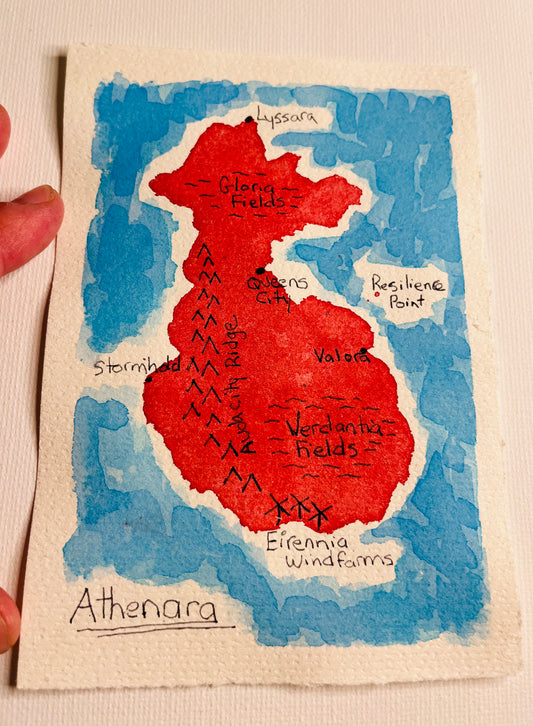 Lyssara
Gloria
Fields
Queens
City
Resilience
Point
Stormhold
Audacity Ridge
Valora
Verdantia
Fields
Eirennia
Windfarms
Athenara